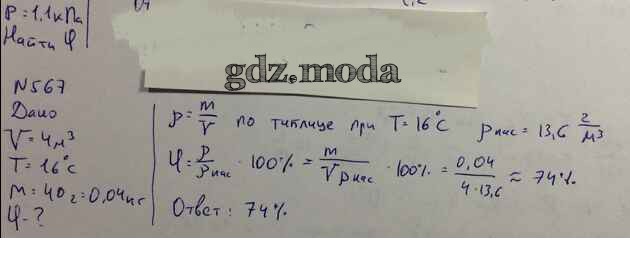 P = 1,1 кПа
Найти φ
gdz.moda
N567
Дано
V = 4 м³
T = 16°C
m = 40 г = 0,04 кг
φ - ?
ρ = m/V по таблице при T = 16°C ρнас = 13,6 г/м³
φ = ρ/ρнас · 100% = m/Vρнас · 100% = 0,04/4·13,6 ≈ 74%
Ответ: 74%